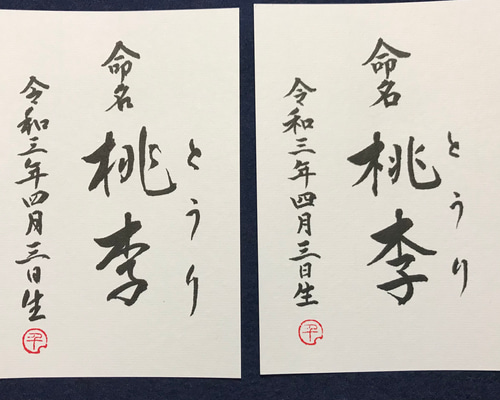 命名
とうり
桃李
令和三年四月三日生
命名
とうり
桃李
令和三年四月三日生